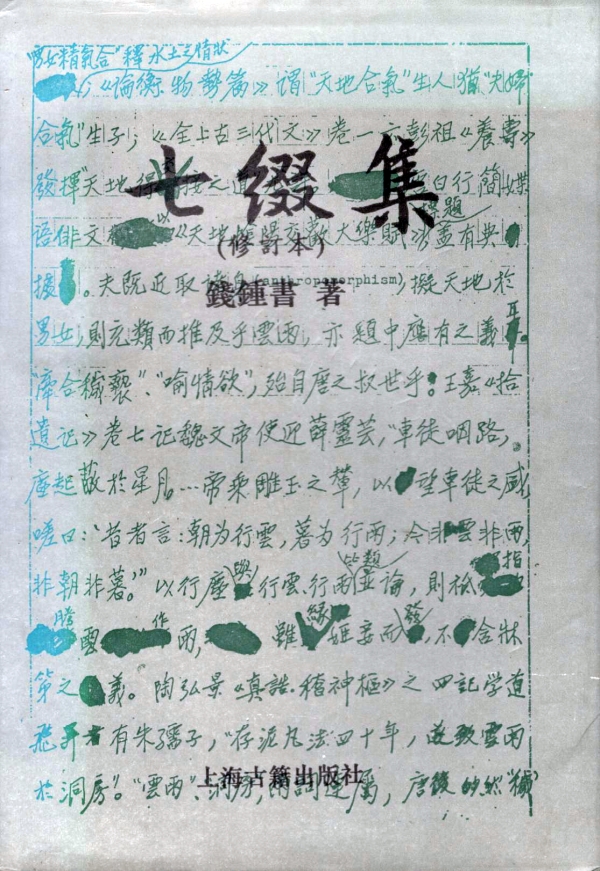 男女精氣合”釋水土之情狀
《論衡·物勢篇》謂“天地合氣”生人猶“夫婦
合氣”生子；《全上古三代文》卷一六彭祖《養壽》
發揮“天地得交接之道
白行簡媟
七綴集
語俳文
題
以《天地陰陽交歡大樂賦》蓋有典
(修訂本)
據。夫既近取諸身(anthropomorphism)，擬天地於
錢鍾書 著
男女，則充類而推及乎雲雨，亦題中應有之義耳。
“喻情欲”，殆自唐之叔世乎。王嘉《拾
遺記》卷七記魏文帝使迎薛靈芸，“車徒咽路，
塵起蔽於星月。…帝乘雕玉之輦，以望車徒之盛，
嗟曰：‘昔者言：朝为行雲，暮为行雨；今非雲非雨，
非朝非暮。’”以行塵與行雲、行雨並論，則
指
騰雲作雨，雖緣姬妾而發，不含狀
第之義。陶弘景《真誥·稽神樞》之四記学道
飛昇者有朱孺子，“存泥丸法四十年，遂致雲雨
上海古籍出版社
於洞房”。“雲雨”、洞房，兩詞連屬，唐後的然“穢